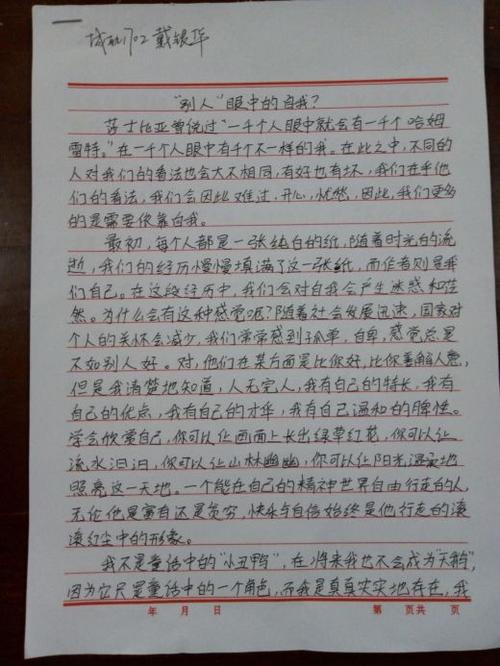 域轨1702 戴银华
“别人”眼中的自我？
莎士比亚曾说过“一千个人眼中就会有一千个哈姆
雷特。”在一千个人眼中有千个不一样的我。在此之中,不同的
人对我们的看法也会大不相同,有好也有坏,我们在乎他
们的看法,我们会因此难过,开心,忧愁,因此,我们更多
的是需要依靠自我。
最初,每个人都是一张纯白的纸,随着时光的流
逝,我们的经历慢慢填满了这一张纸,而作者则是我
们自己。在这段经历中,我们会对自我会产生迷惑和茫
然。为什么会有这种感觉呢?随着社会发展迅速,国家对
个人的关怀会减少,我们常常感到孤单,自卑,感觉总是
不如别人好。对,他们在某方面是比你好,比你善解人意,
但是我清楚地知道,人无完人,我有自己的特长,我有
自己的优点,我有自己的才华,我有自己温和的脾性。
学会欣赏自己,你可以让西面上长出绿草红花,你可以让
流水汩汩,你可以让山林幽幽,你可以让阳光温柔地
照亮这一天地。一个能在自己的精神世界自由行走的人,
无论他是富有还是贫穷,快乐与自信始终是他行走的滚
滚红尘中的形象。
我不是童话中的“小丑鸭”,在将来我也不会成为“天鹅”,
因为它只是童话中的一个角色,而我是真真实实地存在,我
年 月 日 第 页共 页